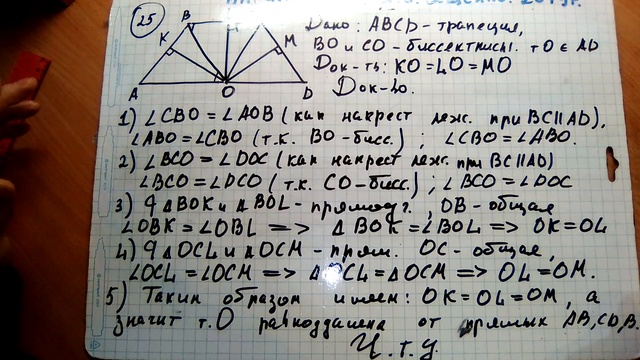 25
B
K
M
A
O
D
Дано: ABCD - трапеция,
BO и CO - биссектрисы. т O ∈ AD
Док-ть: KO = LO = MO
Док-во.
1) ∠CBO = ∠AOB (как накрест леж. при BC||AD),
∠ABO = ∠CBO (т.к. BO - бисс.); ∠CBO = ∠ABO.
2) ∠BCO = ∠DOC (как накрест леж. при BC||AD)
∠BCO = ∠DCO (т.к. CO - бисс.); ∠BCO = ∠DOC
3) ΔBOK и ΔBOL - прямоуг., OB - общая
∠OBK = ∠OBL => ΔBOK = ∠BOL => OK = OL
4) ΔOCL и ΔOCM - прям. OC - общая,
∠OCL = ∠OCM => ΔOCL = ΔOCM => OL = OM.
5) Таким образом имеем: OK = OL = OM, а
значит т. O равноудалена от прямых AB, CD, B.
Ч.т.д.